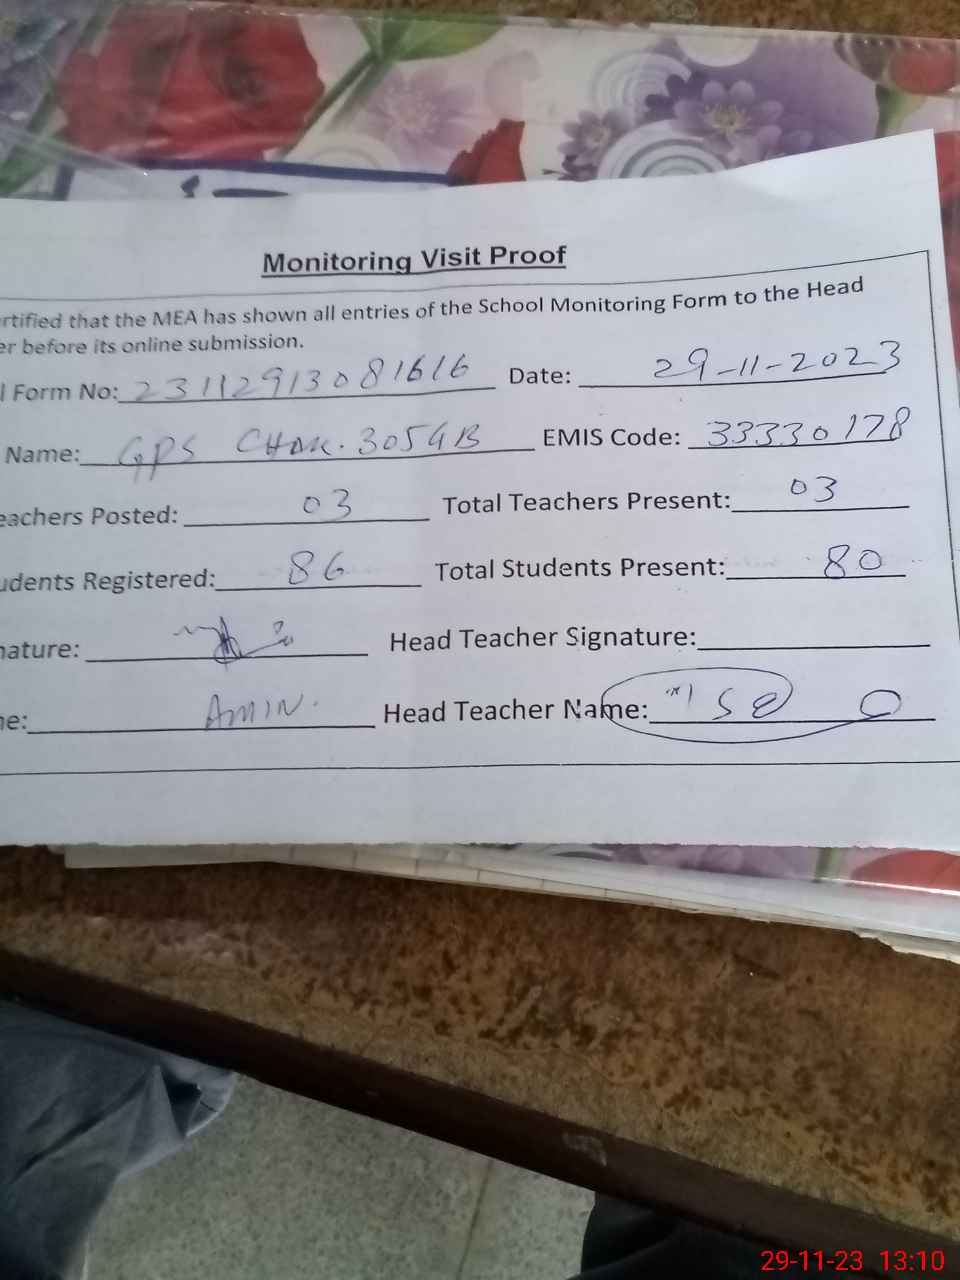 Monitoring Visit Proof
rtified that the MEA has shown all entries of the School Monitoring Form to the Head
er before its online submission.
l Form No: 231129130816 16 Date: 29-11-2023
Name: GPS CHAK. 305GB EMIS Code: 33330178
eachers Posted: 03 Total Teachers Present: 03
udents Registered: 86 Total Students Present: 80
nature: Head Teacher Signature:
ne: AMIN. Head Teacher Name:
29-11-23 13:10